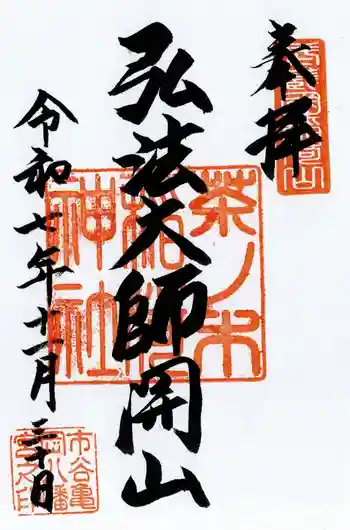 奉拝
弘法大師開山
令和七年十二月三十日
茶ノ木
稲荷
神社
市谷亀
岡八幡
宮之印